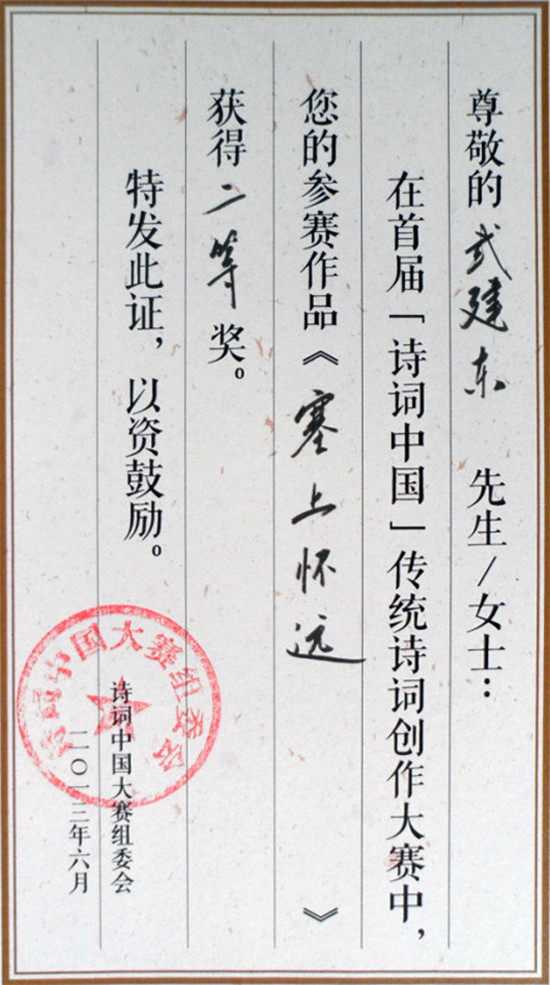 尊敬的武建东 先生/女士：
在首届「诗词中国」传统诗词创作大赛中，
您的参赛作品《塞上怀远》
获得二等奖。
特发此证，以资鼓励。
诗词中国大赛组委会
二〇一三年六月
诗词中国大赛组委会